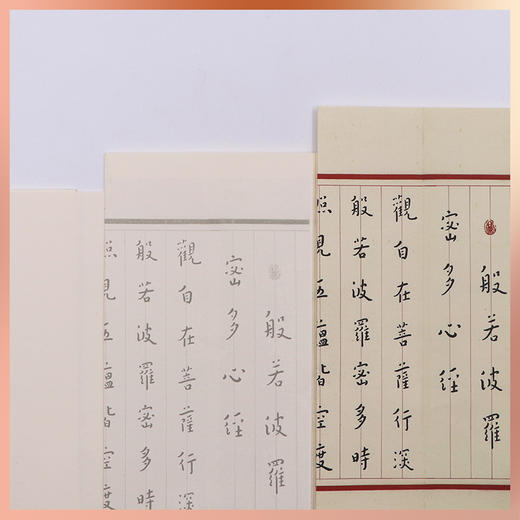 般若波羅
蜜多心經
觀自在菩薩行深
般若波羅蜜多時
照見五蘊皆空度
般若波羅
蜜多心經
觀自在菩薩行深
般若波羅蜜多時
照見五蘊皆空度